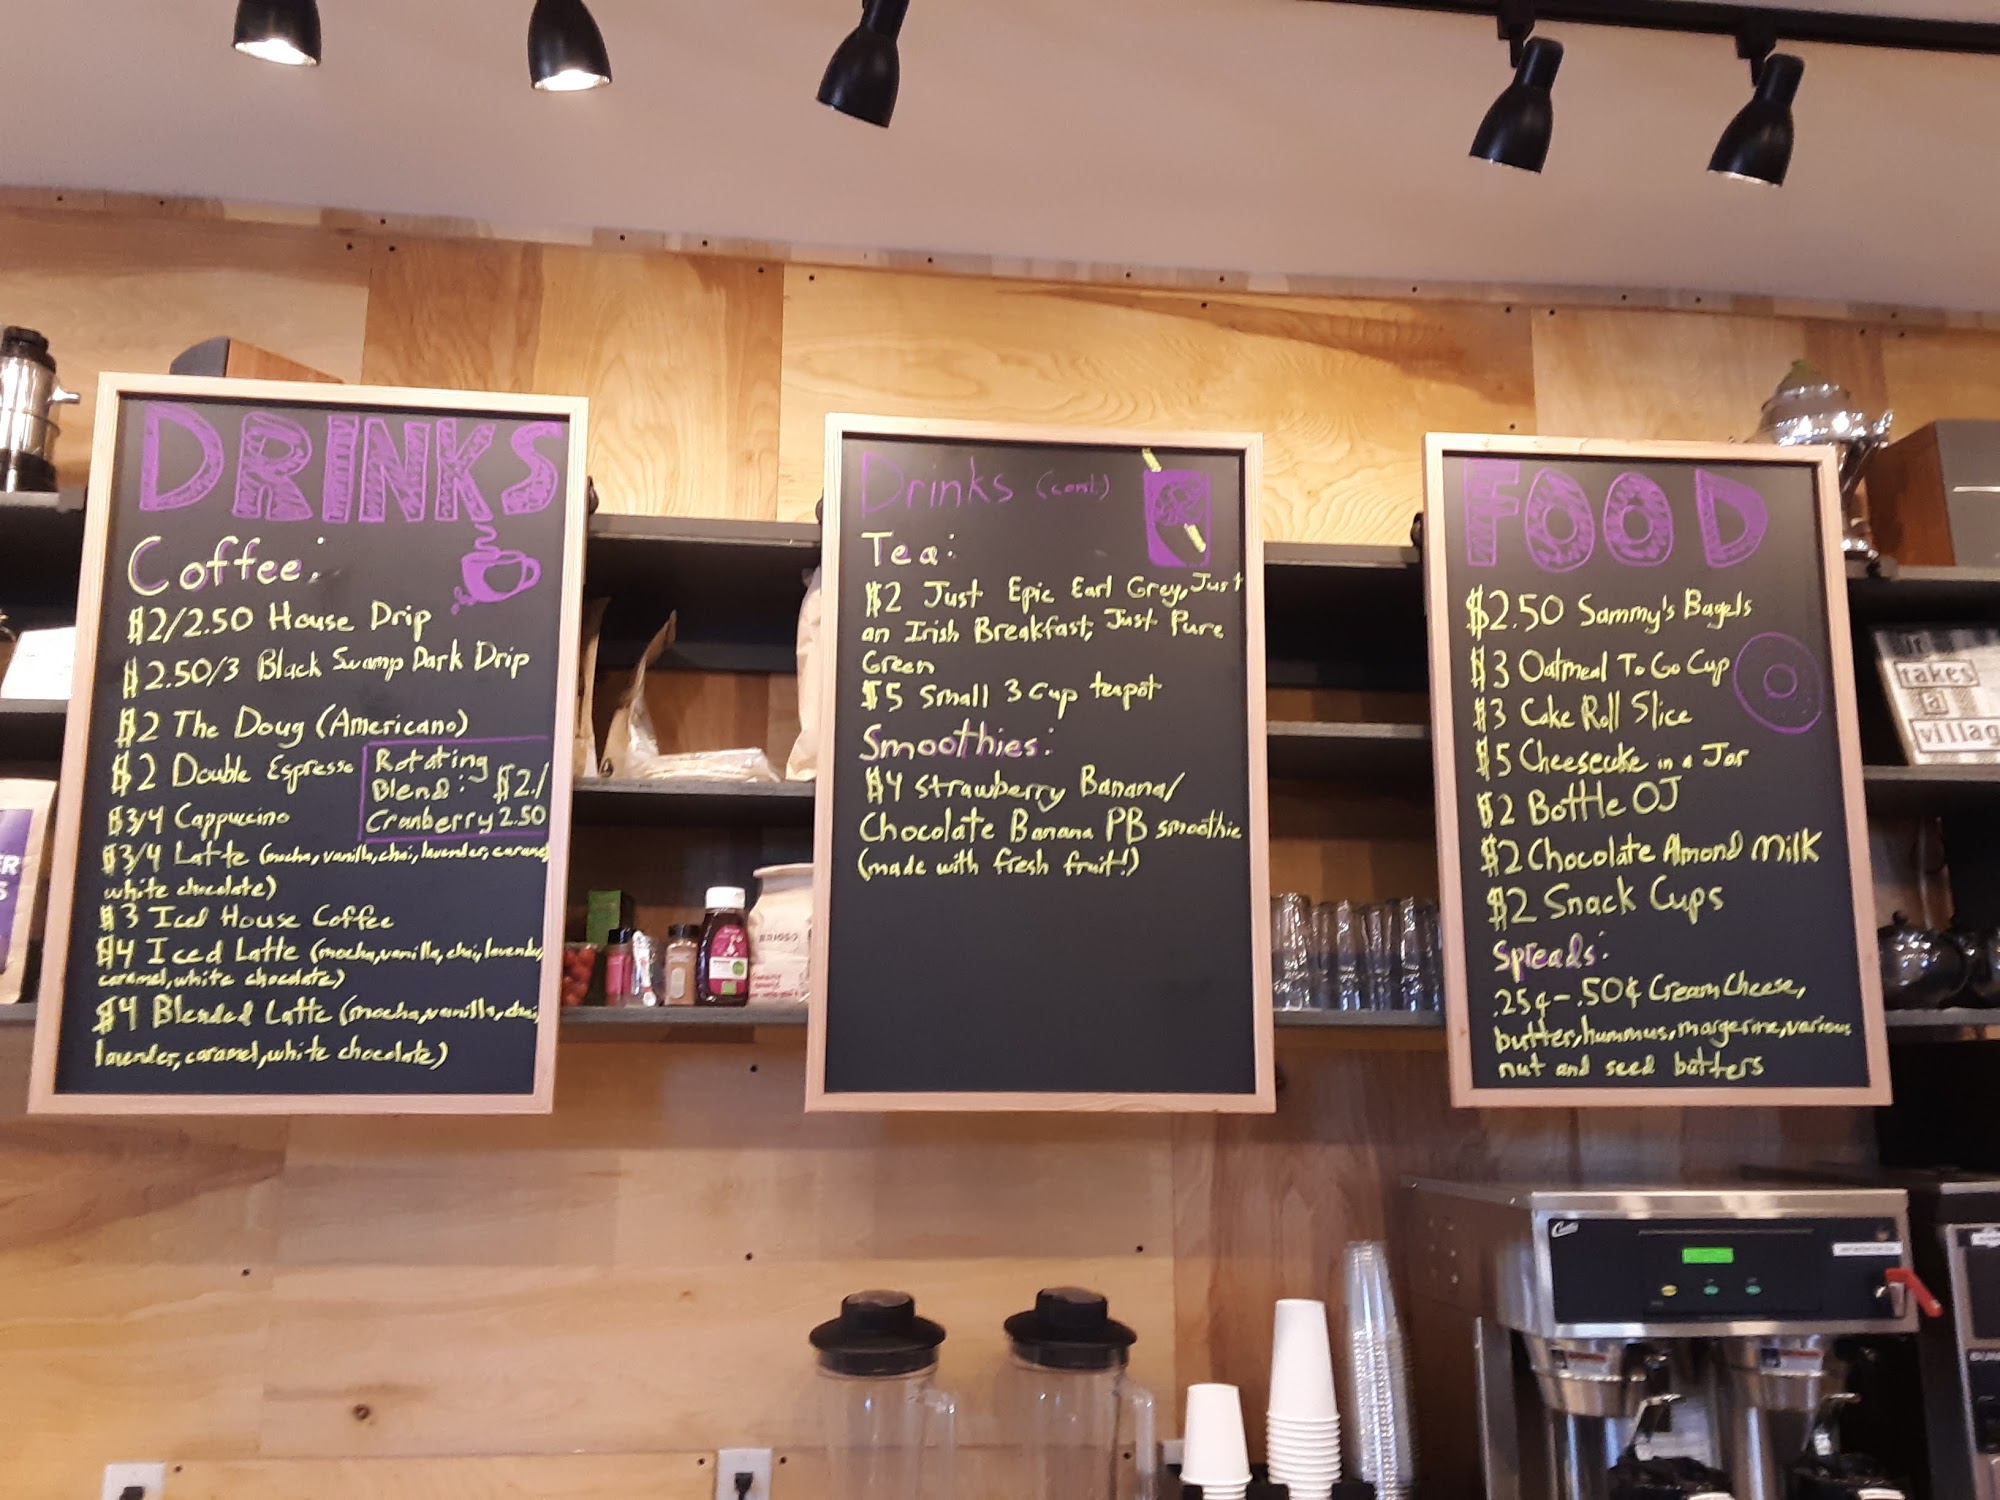 DRINKS
Coffee:
$2/2.50 House Drip
$2.50/3 Black Swamp Dark Drip
$2 The Doug (Americano)
$2 Double Espresso
Rotating
Blend: $2./
Cranberry 2.50
$3/4 Cappuccino
$3/4 Latte (mocha, vanilla, chai, lavender, caramel
white chocolate)
$3 Iced House Coffee
$4 Iced Latte (mocha, vanilla, chai, lavender,
caramel, white chocolate)
$4 Blended Latte (mocha, vanilla, chai,
lavender, caramel, white chocolate)
Drinks (cont.)
Tea:
$2 Just Epic Earl Grey, Just
an Irish Breakfast, Just Pure
Green
$5 Small 3 cup teapot
Smoothies:
$4 Strawberry Banana/
Chocolate Banana PB smoothie
(made with fresh fruit!)
FOOD
$2.50 Sammy's Bagels
$3 Oatmeal To Go Cup
$3 Cake Roll Slice
$5 Cheesecake in a Jar
$2 Bottle OJ
$2 Chocolate Almond Milk
$2 Snack Cups
Spreads:
.25¢-.50¢ Cream Cheese,
butter, hummus, margerine, various
nut and seed butters
it
takes
a
villag
BRIOSO
Curtis